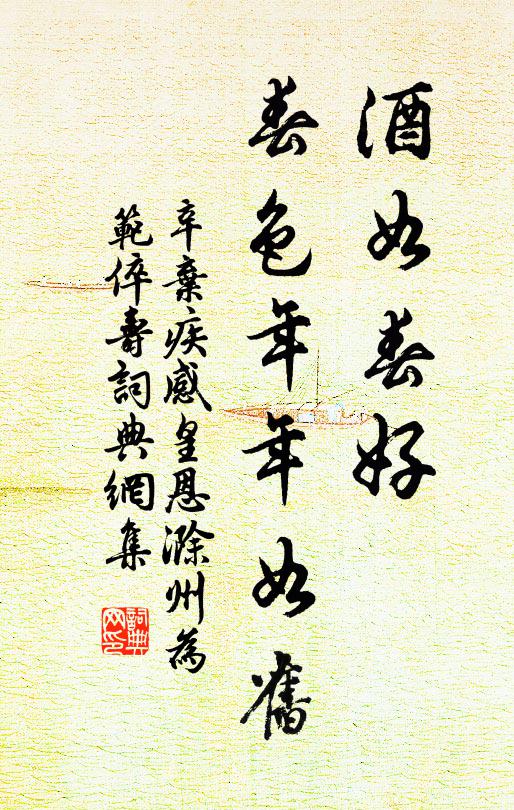 酒如春好
春色年年如舊
辛棄疾感皇恩滁州為
範倅壽詞典網集
詞典
网印